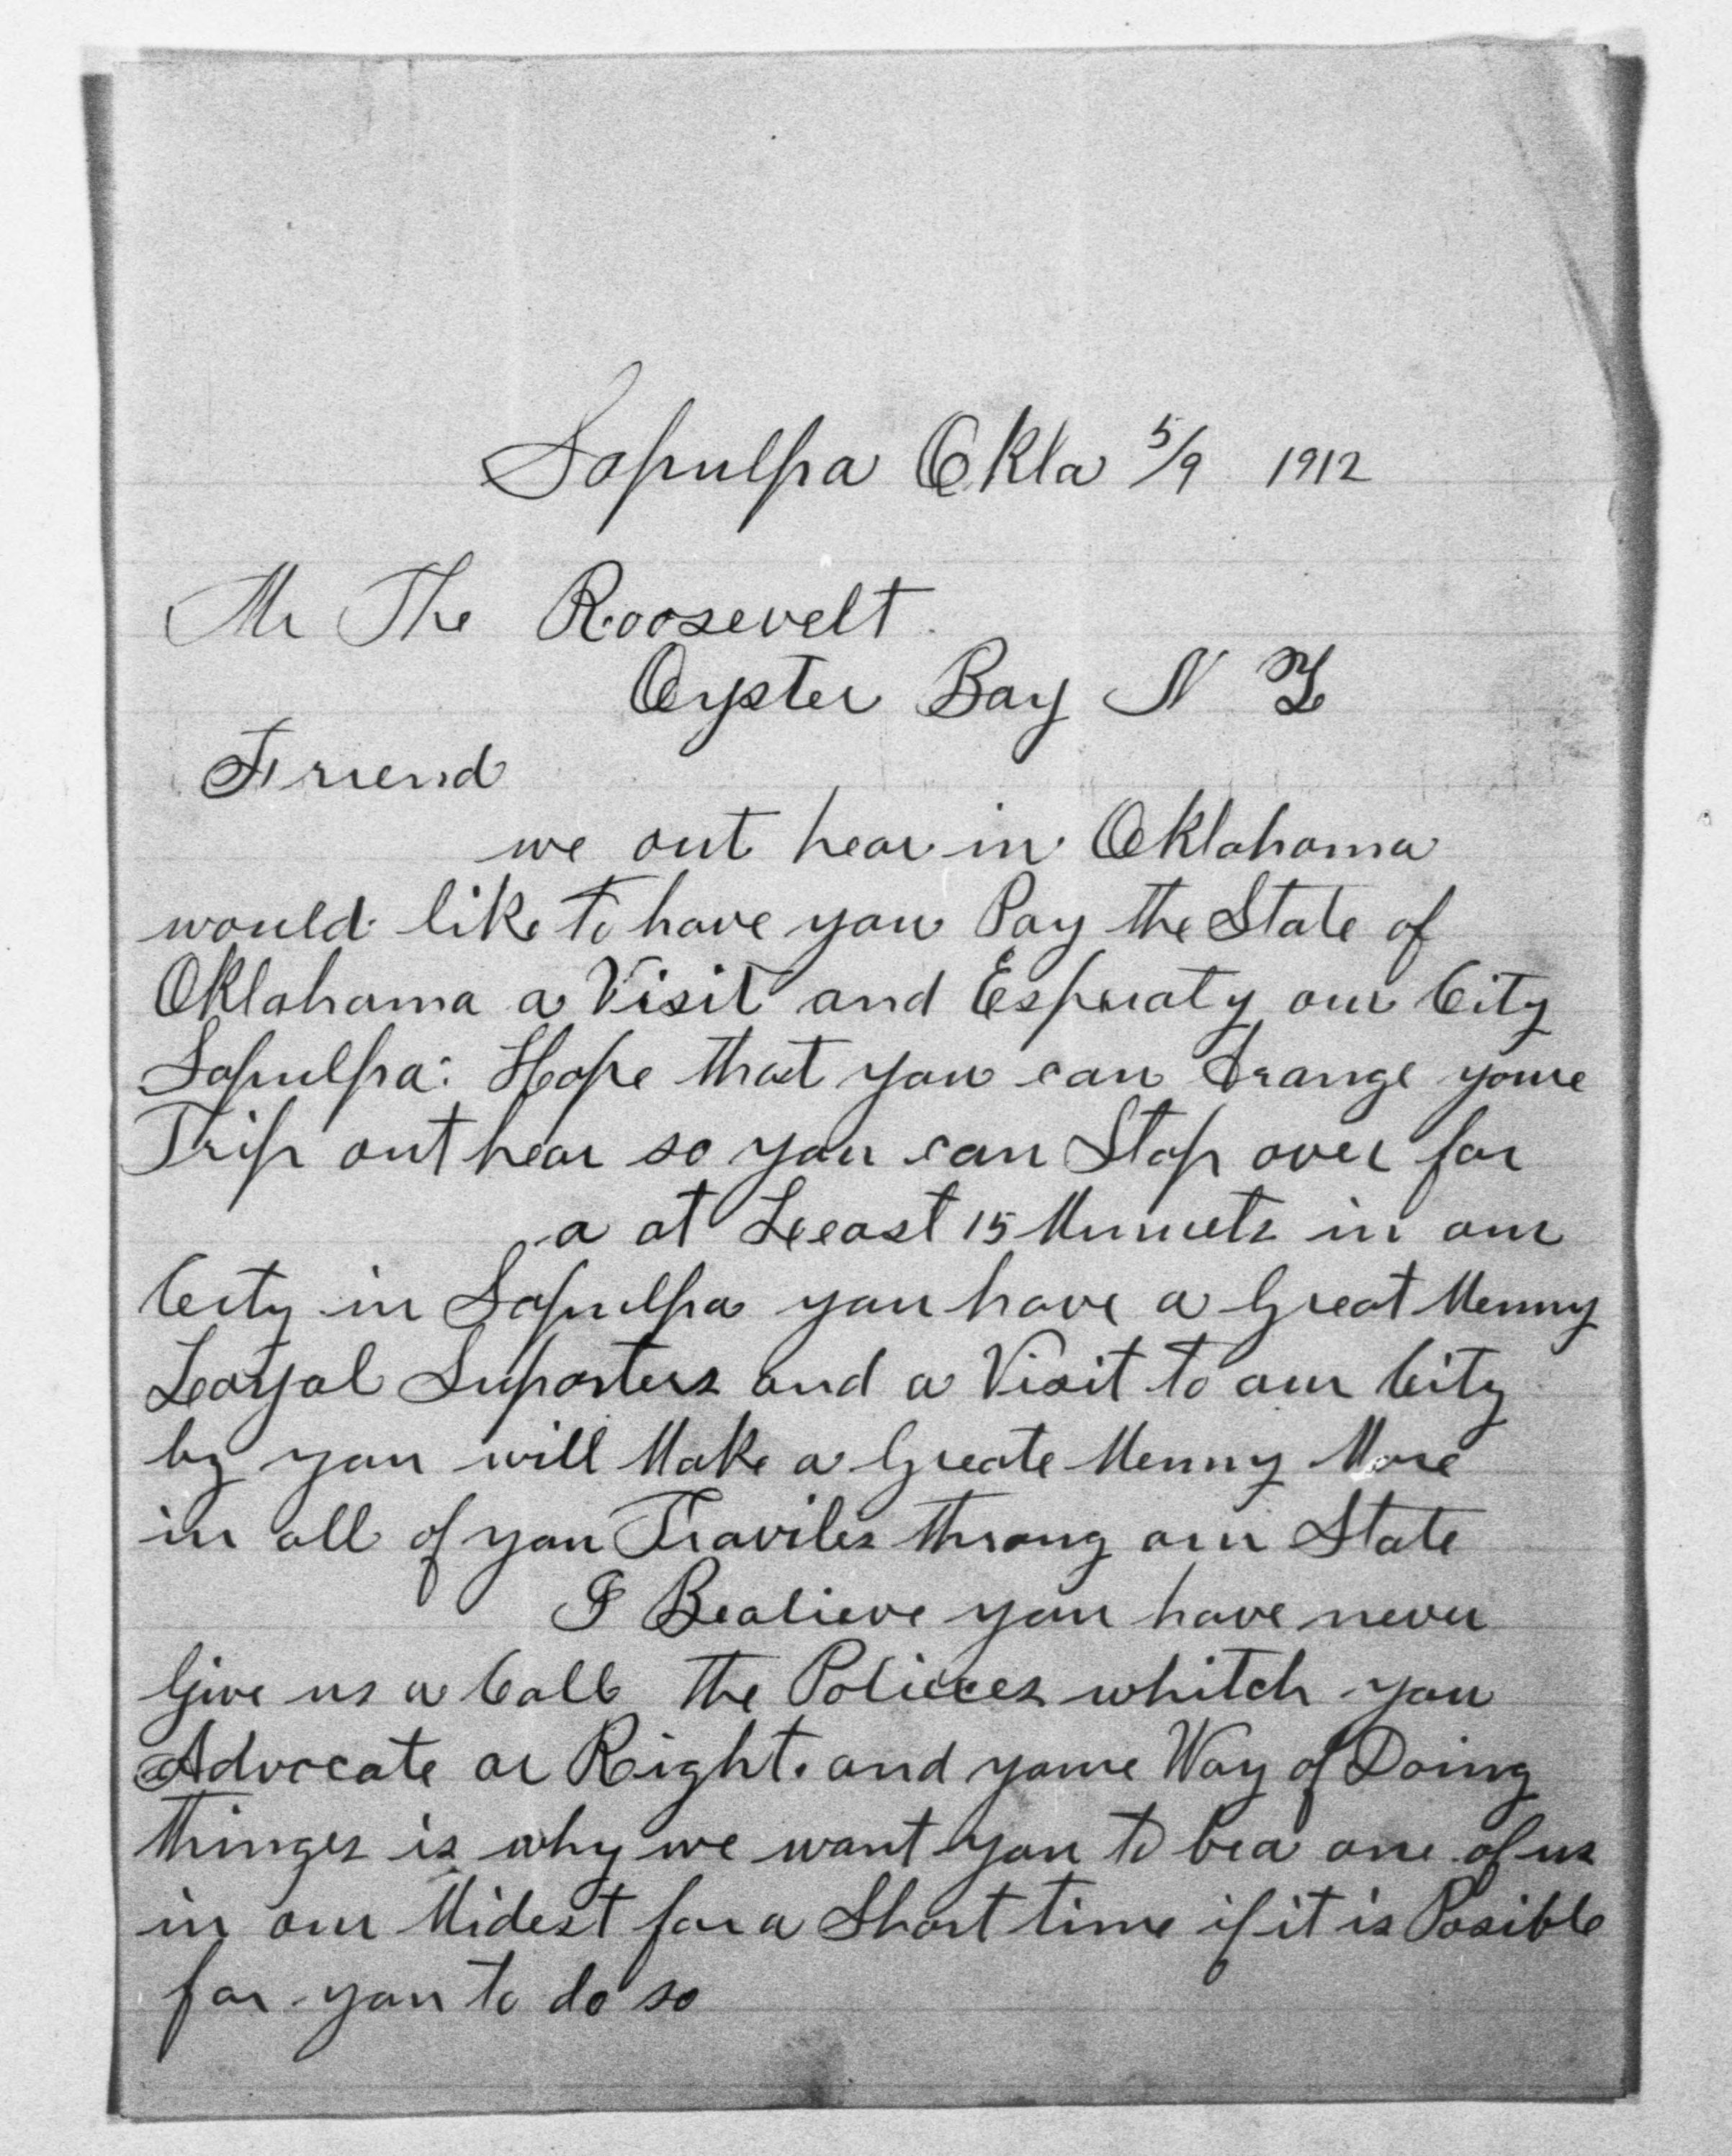 Sapulpa Okla 5/9 1912
Mr The Roosevelt.
Oyster Bay N Y
Friend
we out hear in Oklahoma
would like to have you Pay the State of
Oklahoma a Visit and our City
Sapulpa: Hope that you can Arange youre
Trip out hear so you can Stop over for
a at Leeast 15 Minuets in our
City in Sapulpa you have a Great Menny
Leoyal Suporters and a Visit to our City
by you will Make a Greate Menny More
in all of you Traviles throug our State
I Bealieve you have never
Give us a Call the Policces whitch you
Advocate ar Right. and youre Way of Doing
thinges is why we want you to bea one of us
in our Midest for a Short time if it is Posible
for you to do so